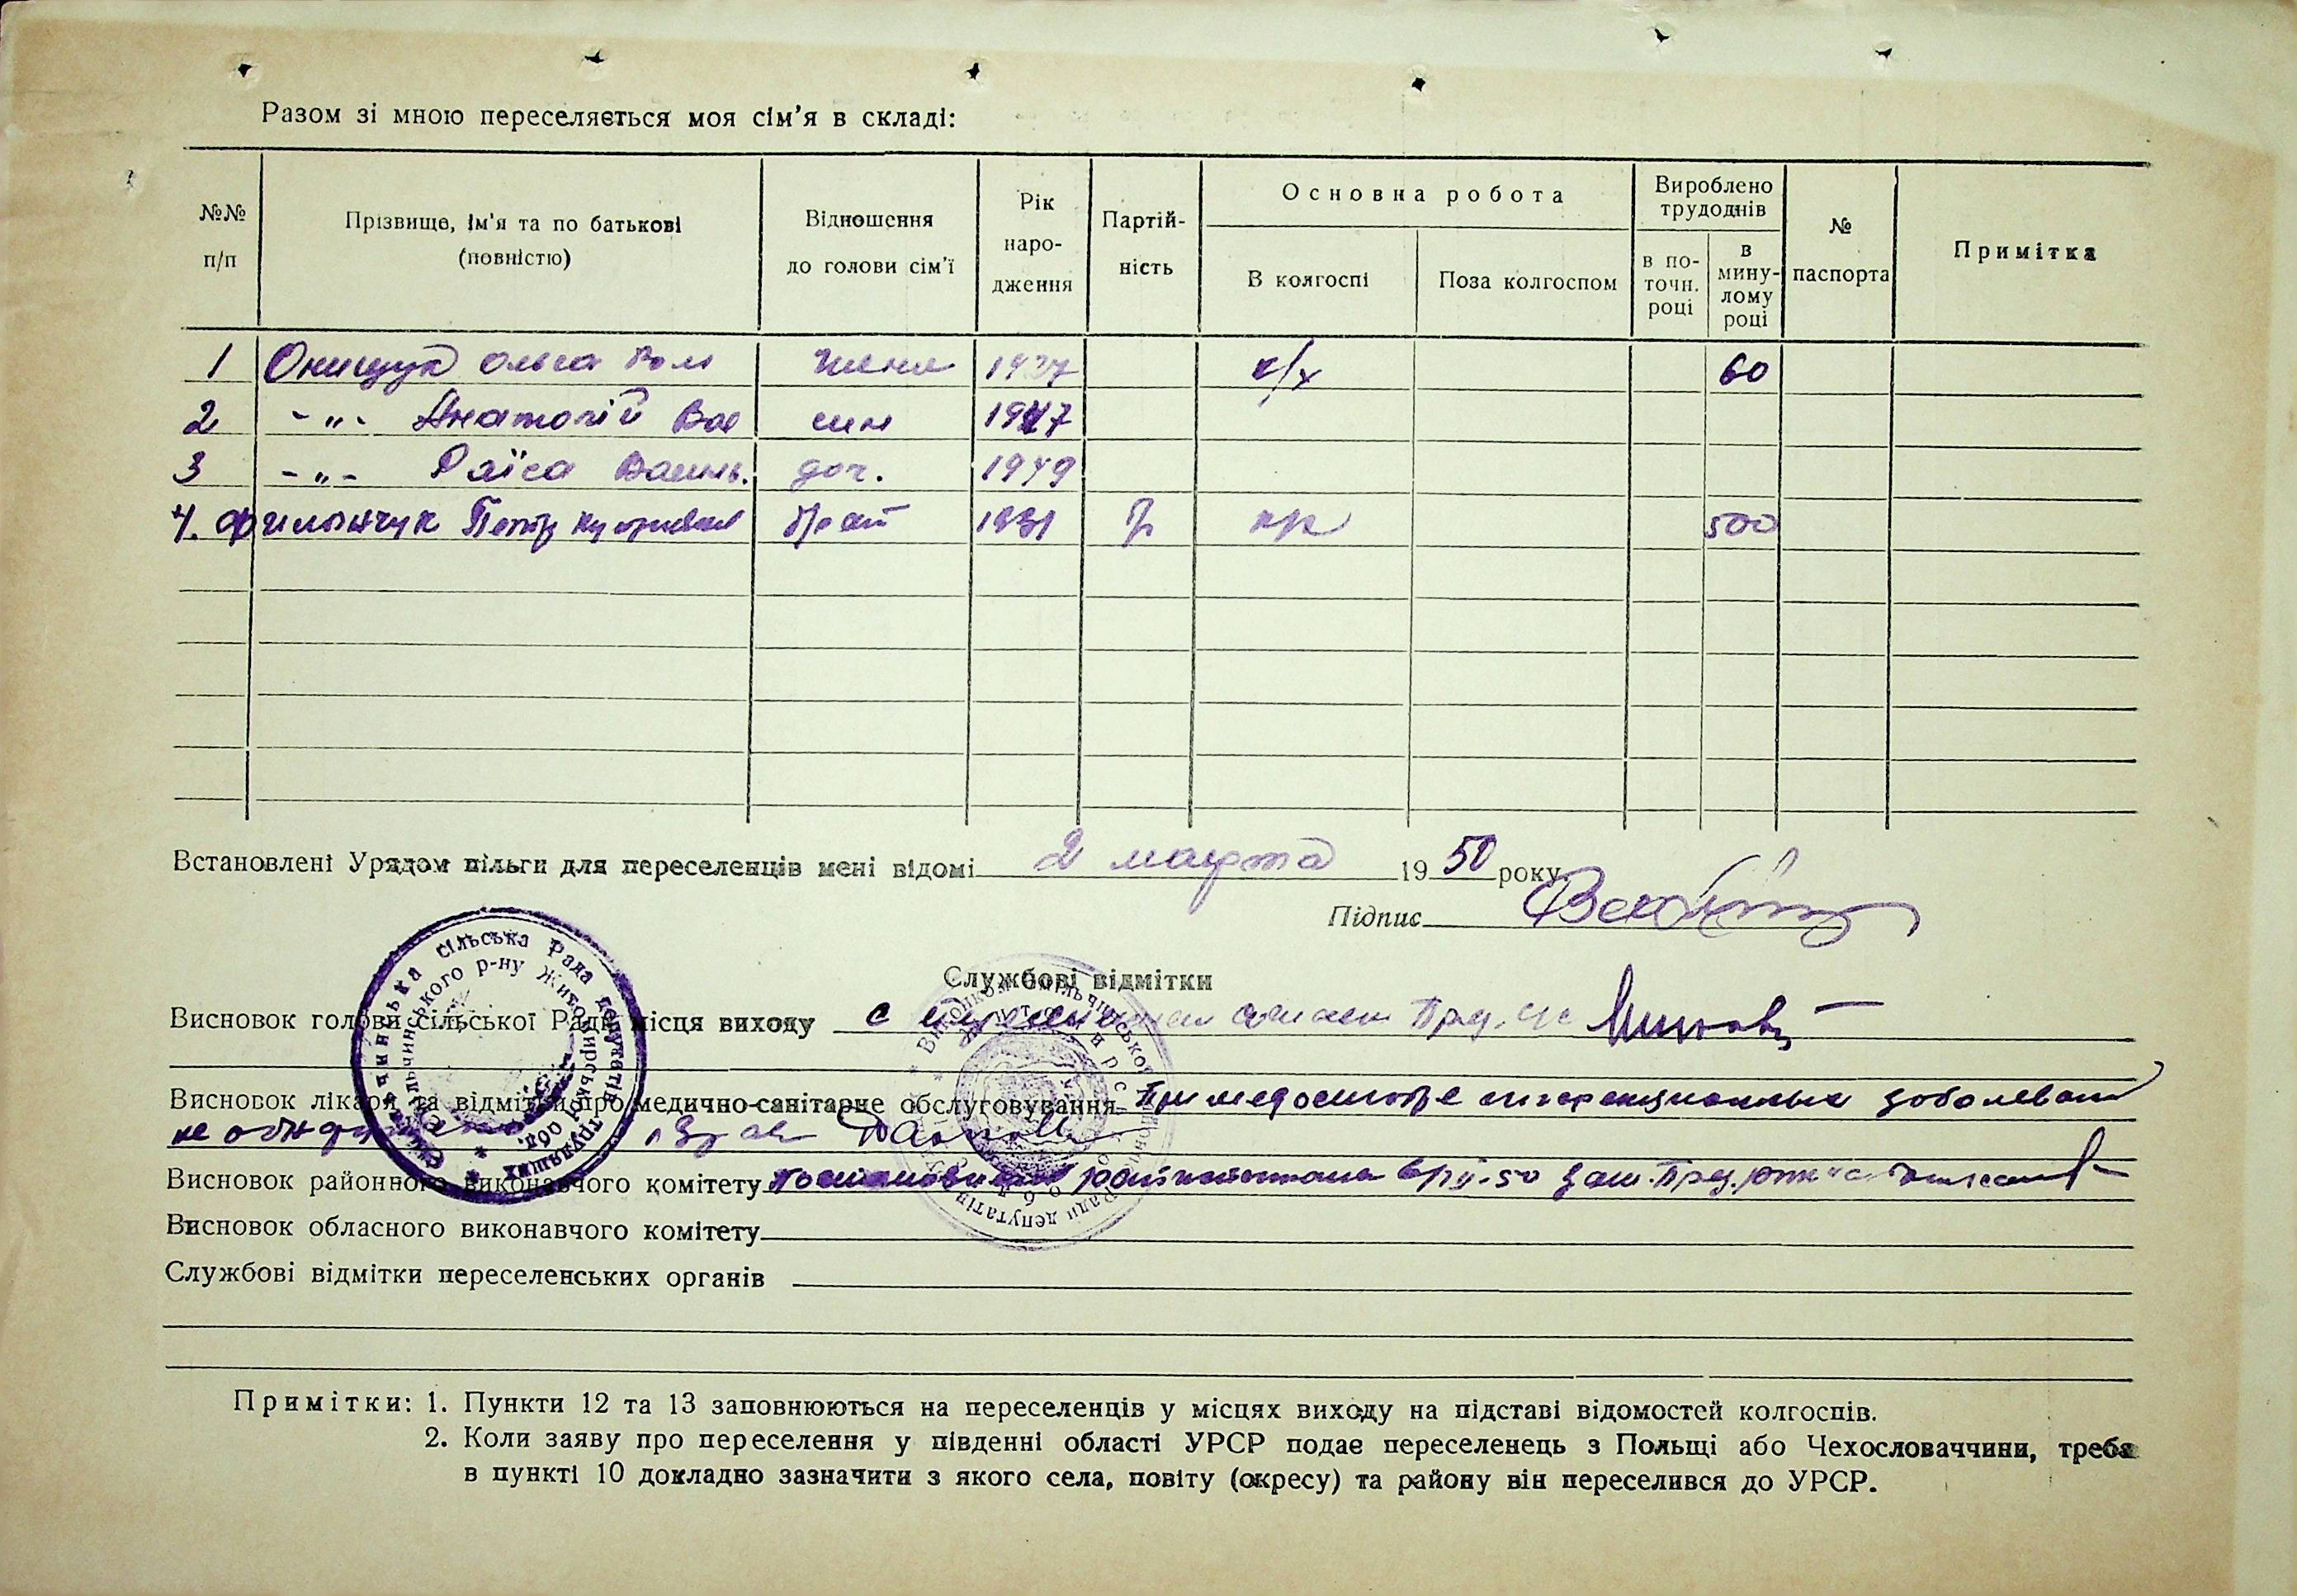 Разом зі мною переселяється моя сім'я в складі:
№№ п/п
Прізвище, ім'я та по батькові (повністю)
Відношення до голови сім'ї
Рік народження
Партійність
Основна робота
В колгоспі
Поза колгоспом
Вироблено трудоднів
в поточн. році
в минулому році
№ паспорта
Примітка
1 Онищук Ольга жена 1927 к/х 60
2 -"- Анатолій Вас син 1947
3 -"- Раїса Василь. доч. 1949
4. Филончук Петр брат 1931 500
Встановлені Урядом пільги для переселенців мені відомі 2 марта 1950 року.
Підпис
Службові відмітки
Висновок голови сільської Ради місця виходу с
Висновок лікаря та відмітки про медично-санітарне обслуговування При медосмотре инфекционных заболеваний
не
Висновок районного виконавчого комітету
Висновок обласного виконавчого комітету
Службові відмітки переселенських органів
Примітки: 1. Пункти 12 та 13 заповнюються на переселенців у місцях виходу на підставі відомостей колгоспів.
2. Коли заяву про переселення у південні області УРСР подає переселенець з Польщі або Чехословаччини, треба
в пункті 10 докладно зазначити з якого села, повіту (окресу) та району він переселився до УРСР.
сільська Рада депутатів трудящих
р-ну Житомирської обл.